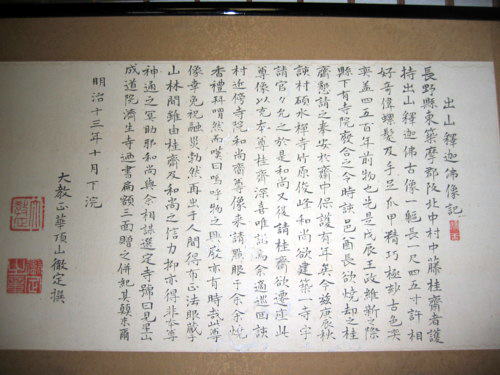 出山釋迦佛像記
長野縣東築摩郡阪北中村中藤桂齋者護
持出山釋迦佛古像一軀長一尺四五寸許相
好奇偉螺髮及手足爪甲精巧極妙古色奕
奕蓋四五百年前物也先是戊辰王政維新之際
縣下有寺院廢合之令時該邑酋長欲燒却之桂
齋懇請之奉安於齋中保護有年矣今茲庚辰秋
該村碩水禪寺竹原俊峰和尚欲建築一寺宇
請官々允之於是和尚又後請桂齋欲遷座此
尊像以充本尊桂齋深喜唯諾焉余適巡回該
村近傍寺院和尚齋尊像来請點眼于余余
香禮拜喟然而嘆曰嗚呼物之興廢亦有時哉此尊
像幸免祝融災勃然再出于人間得布正法眼藏于
山林間雖由桂齋及和尚之信力抑亦得非本尊
神通之冥助耶和尚與余相謀選定寺號曰見星山
成道院濟生寺迺書扁額三面贈之併記其顛末爾
明治十三年十月下浣
大教正華頂山徹定撰